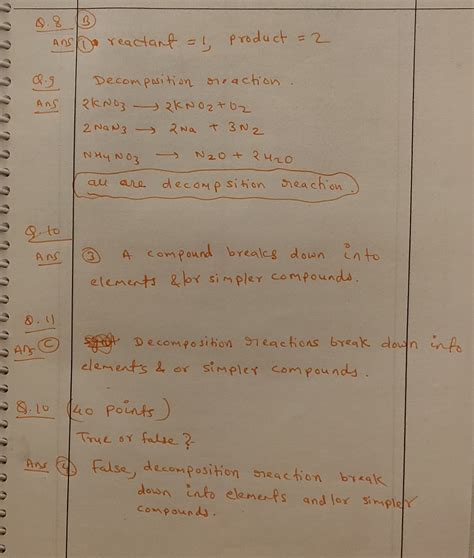 Q.8 B
Ans 1 reactant = 1, product = 2
Q.9 Decomposition reaction.
Ans 2KNO3 → 2KNO2 + O2
2NaN3 → 2Na + 3N2
NH4NO3 → N2O + 2H2O
all are decomposition reaction.
Q.10
Ans 3 A compound breaks down into
elements &/or simpler compounds.
Q.11
Ans C Decomposition reactions break down info
elements & or simpler compounds.
Q.10 (40 points)
True or false?
Ans False, decomposition reaction break
down into elements and/or simpler
compounds.